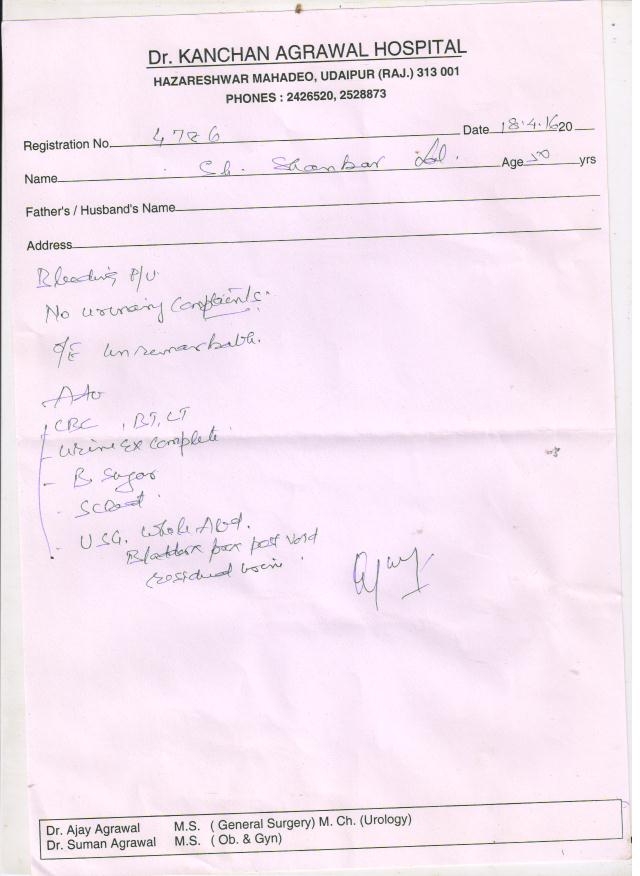 Dr. KANCHAN AGRAWAL HOSPITAL
HAZARESHWAR MAHADEO, UDAIPUR (RAJ.) 313 001
PHONES : 2426520, 2528873
Registration No. 4786 Date 18.4.16 20
Name Sh. Shankar Lal. Age 50 yrs
Father's / Husband's Name
Address
Bleeding P/U
No urinary complaints.
O/E unremarkable.
CBC , BT, CT
- Urine Ex complete
- B. Sugar
- S Creat
- USG. Whole Abd.
Bladder for post void
residual urine.
Ajay
Dr. Ajay Agrawal M.S. ( General Surgery) M. Ch. (Urology)
Dr. Suman Agrawal M.S. ( Ob. & Gyn)